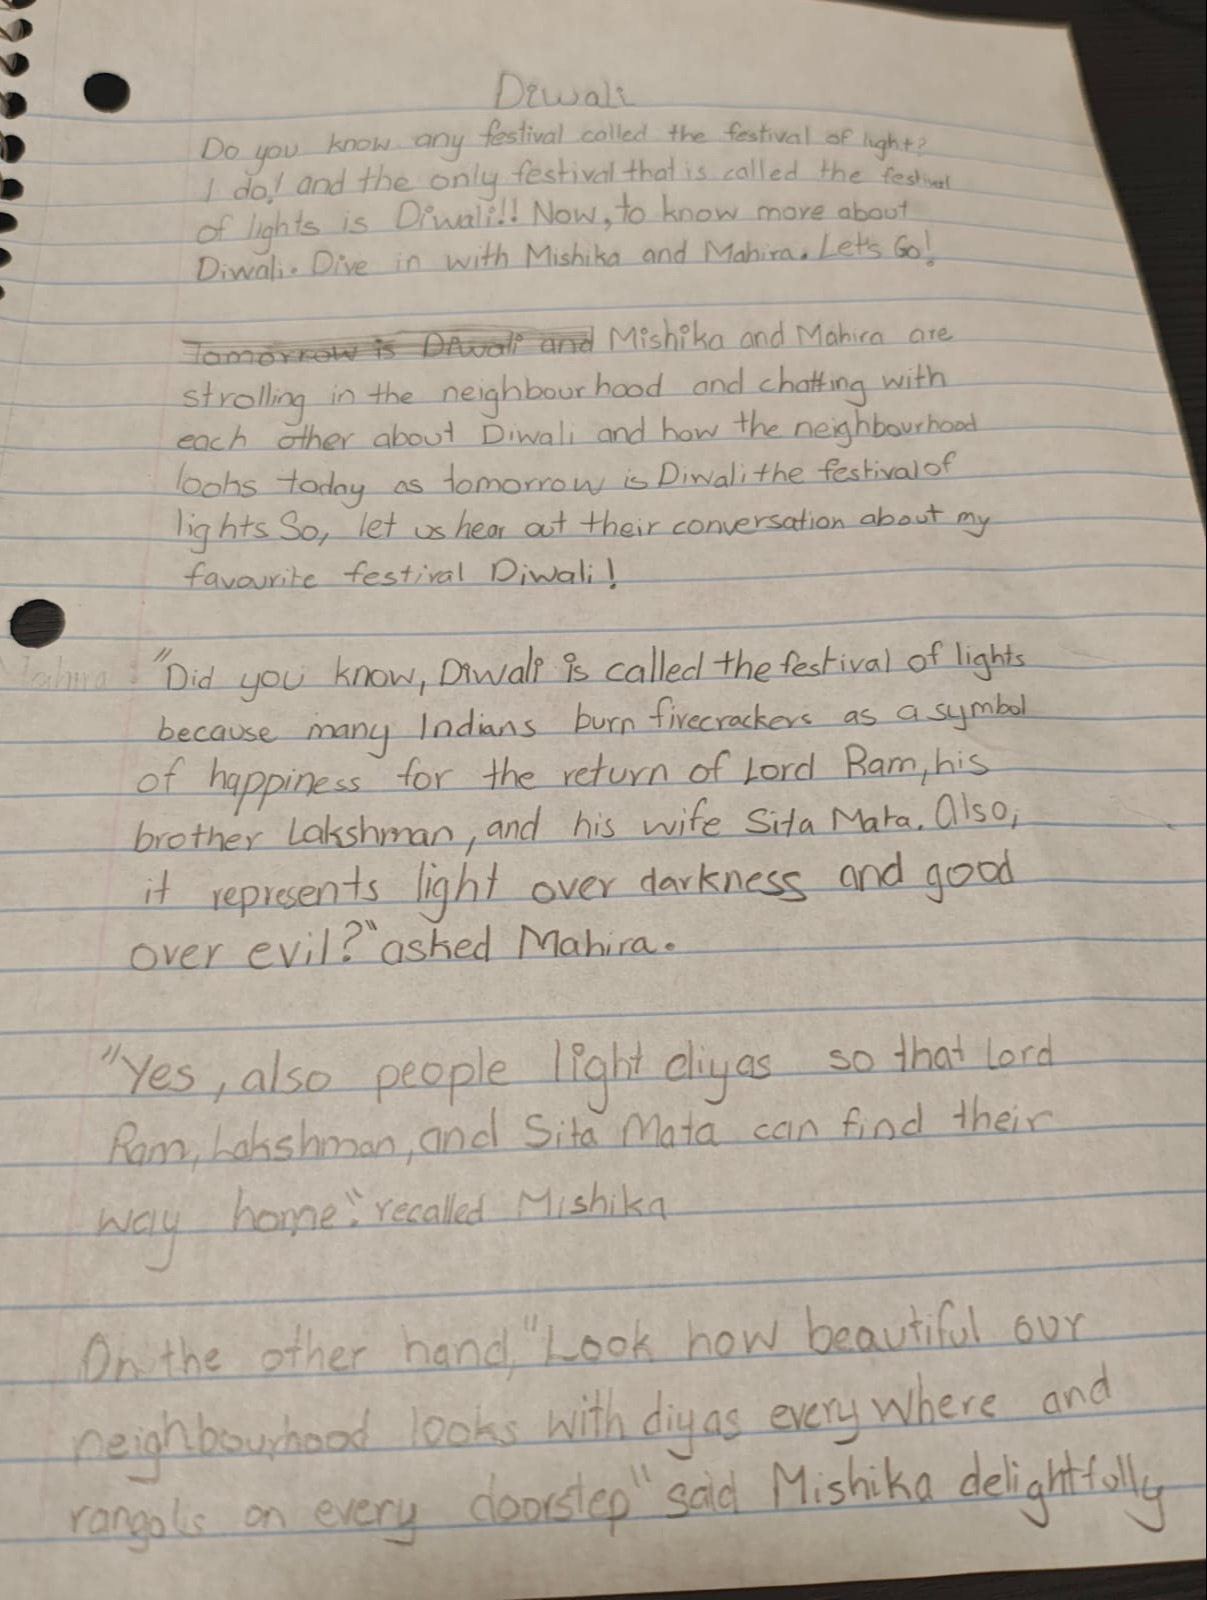 Diwali
Do you know any festival called the festival of light?
I do! and the only festival that is called the festival
of lights is Diwali!! Now, to know more about
Diwali. Dive in with Mishika and Mahira. Let's Go!
Tomorrow is Diwali and Mishika and Mahira are
strolling in the neighbourhood and chatting with
each other about Diwali and how the neighbourhood
looks today as tomorrow is Diwali the festival of
lights So, let us hear out their conversation about my
favourite festival Diwali!
Mahira : "Did you know, Diwali is called the festival of lights
because many Indians burn firecrackers as a symbol
of happiness for the return of Lord Ram, his
brother Lakshman, and his wife Sita Mata. Also,
it represents light over darkness and good
over evil?" asked Mahira.
"Yes, also people light diyas so that Lord
Ram, Lakshman, and Sita Mata can find their
way home". recalled Mishika
On the other hand, "Look how beautiful our
neighbourhood looks with diyas everywhere and
rangolis on every doorstep" said Mishika delightfully